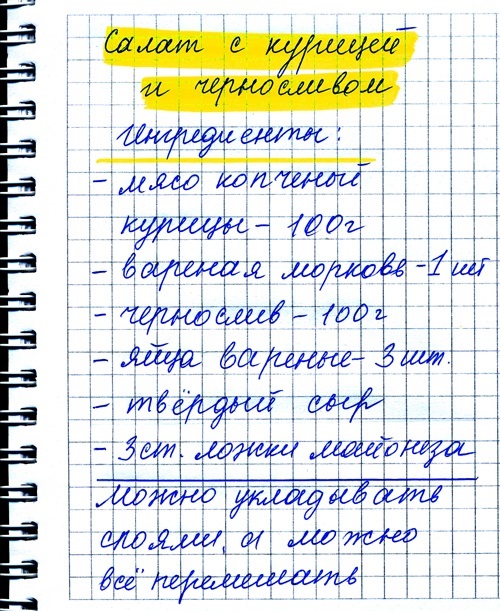 Салат с курицей
и черносливом
Ингредиенты:
- мясо копченый
курицы - 100г
- вареная морковь - 1 шт
- чернослив - 100г
- яйца вареные - 3 шт.
- твёрдый сыр
- 3 ст. ложки майонеза
можно укладывать
слоями, а можно
всё перемешать